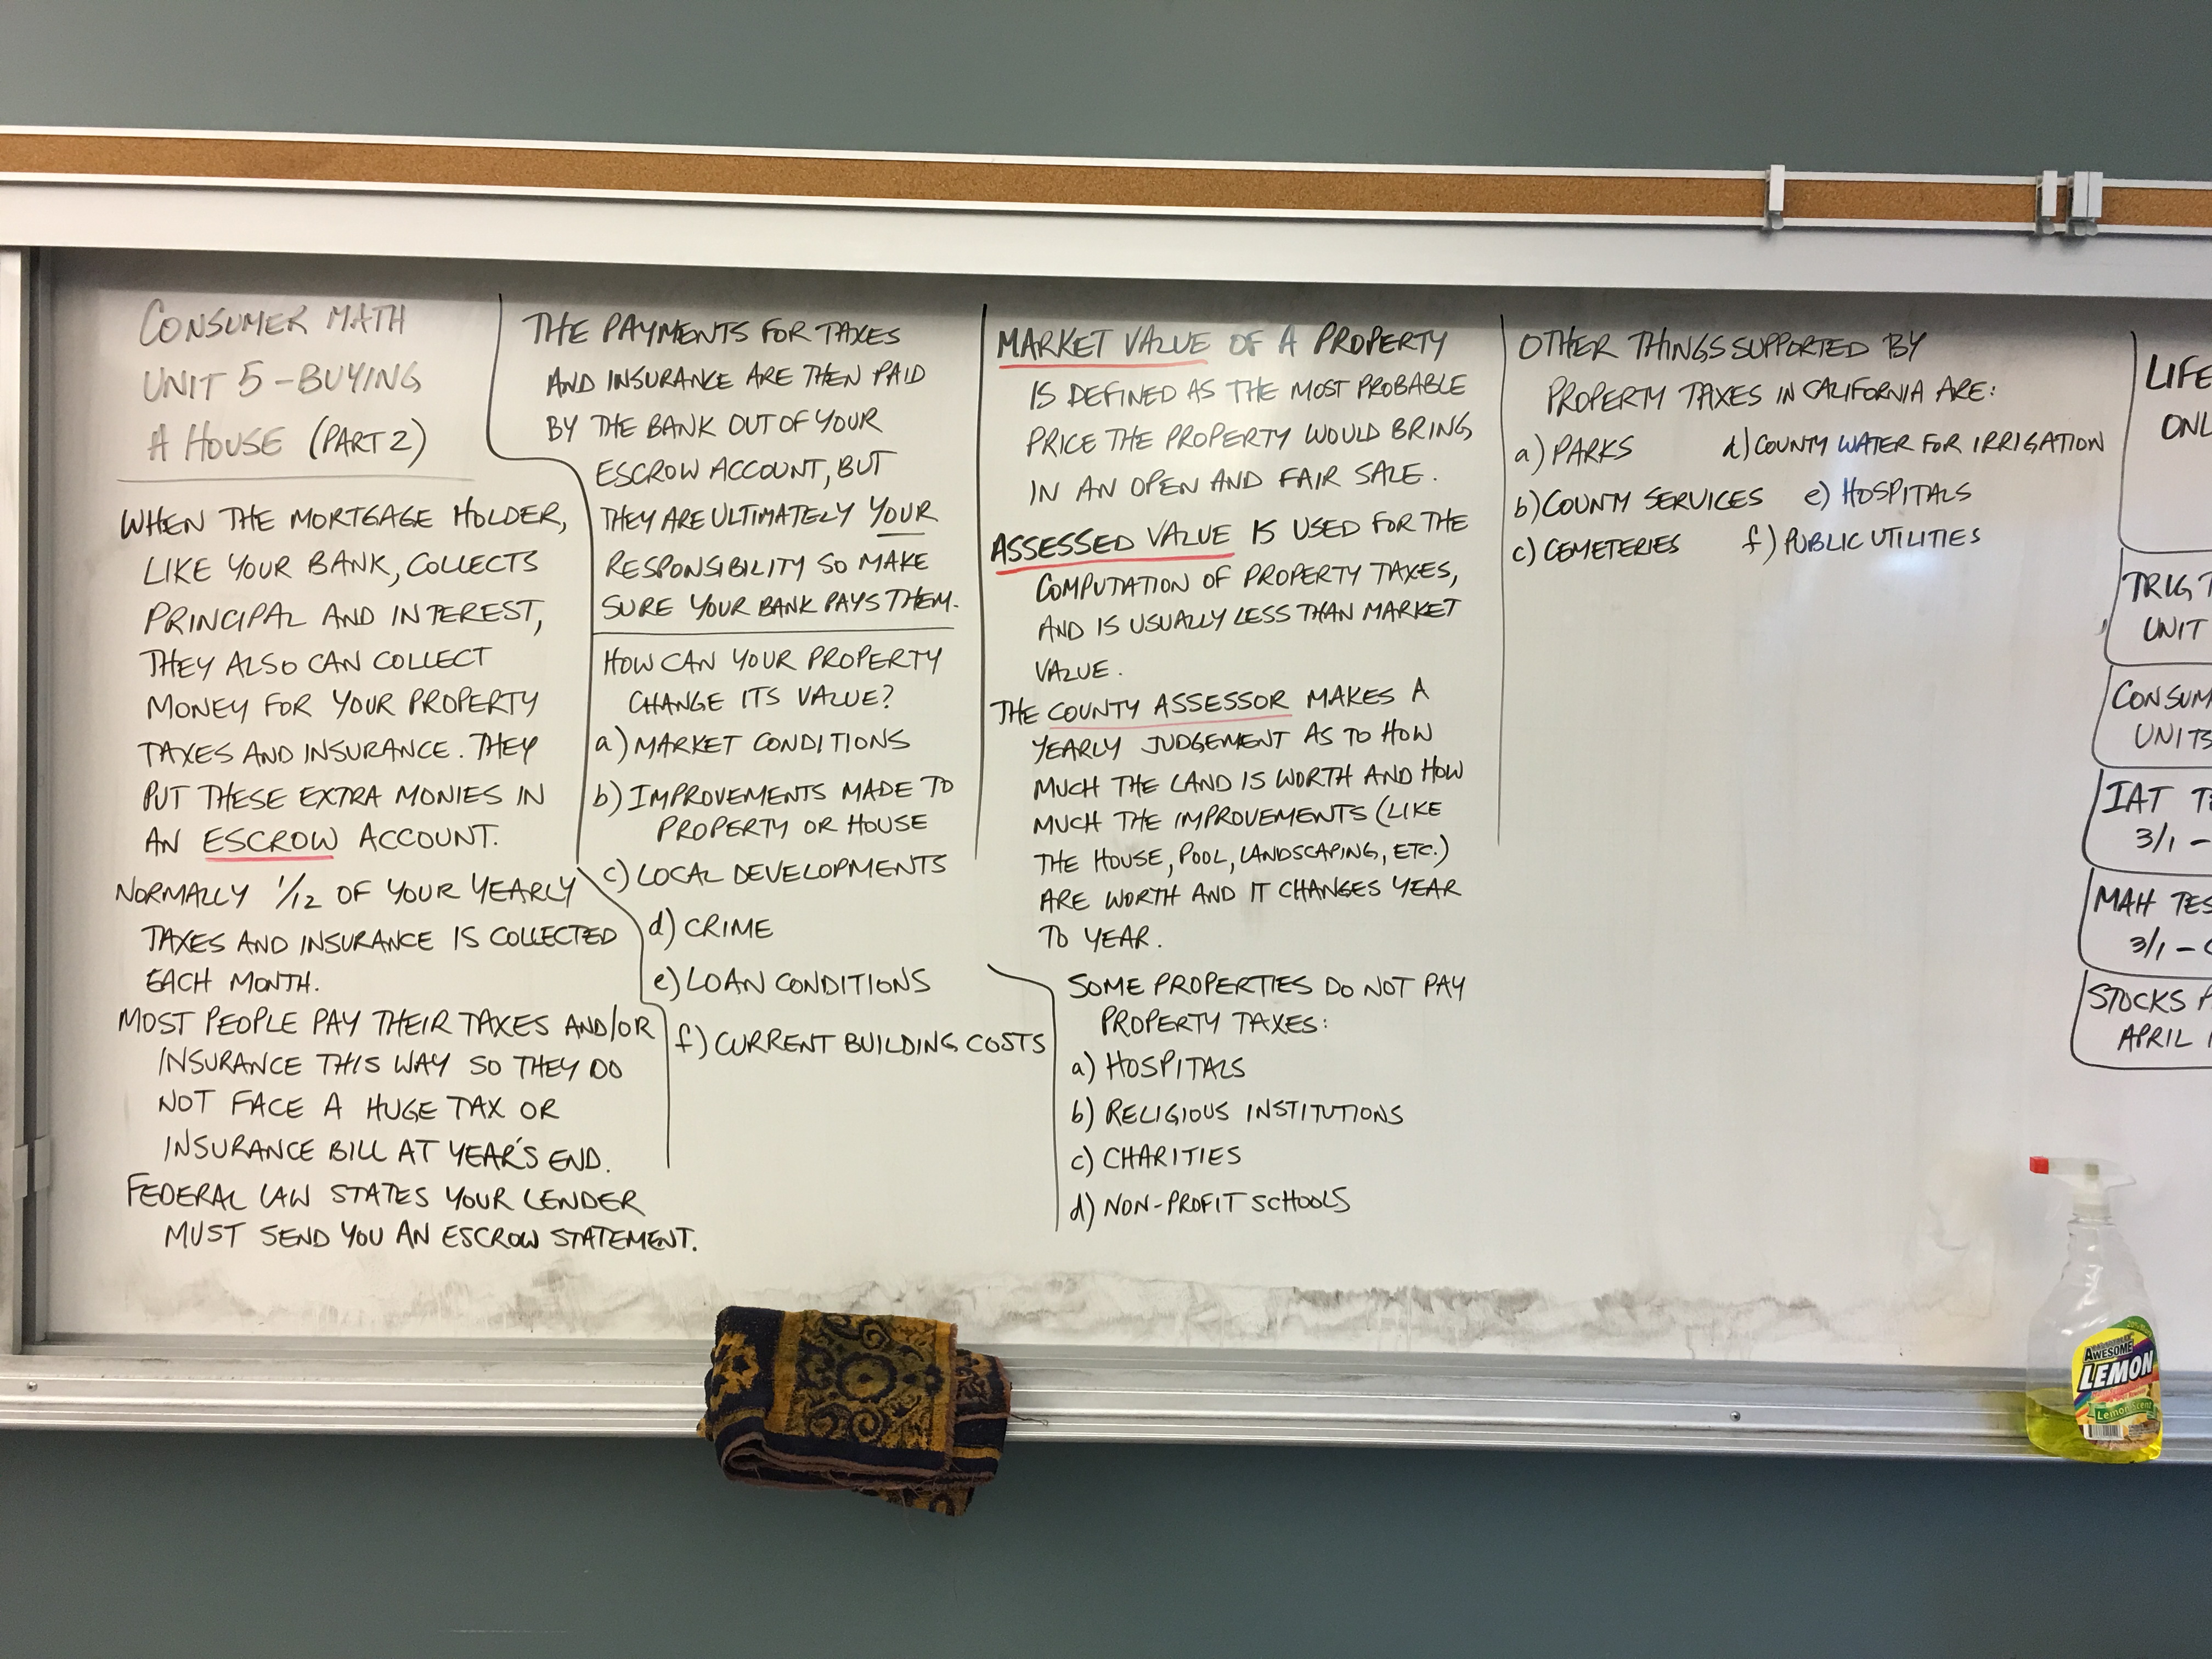 CONSUMER MATH
UNIT 5 - BUYING
A HOUSE (PART 2)
WHEN THE MORTGAGE HOLDER,
LIKE YOUR BANK, COLLECTS
PRINCIPAL AND INTEREST,
THEY ALSO CAN COLLECT
MONEY FOR YOUR PROPERTY
TAXES AND INSURANCE. THEY
PUT THESE EXTRA MONIES IN
AN ESCROW ACCOUNT.
NORMALLY 1/12 OF YOUR YEARLY
TAXES AND INSURANCE IS COLLECTED
EACH MONTH.
MOST PEOPLE PAY THEIR TAXES AND/OR
INSURANCE THIS WAY SO THEY DO
NOT FACE A HUGE TAX OR
INSURANCE BILL AT YEAR'S END.
FEDERAL LAW STATES YOUR LENDER
MUST SEND YOU AN ESCROW STATEMENT.
THE PAYMENTS FOR TAXES
AND INSURANCE ARE THEN PAID
BY THE BANK OUT OF YOUR
ESCROW ACCOUNT, BUT
THEY ARE ULTIMATELY YOUR
RESPONSIBILITY SO MAKE
SURE YOUR BANK PAYS THEM.
HOW CAN YOUR PROPERTY
CHANGE ITS VALUE?
a) MARKET CONDITIONS
b) IMPROVEMENTS MADE TO
PROPERTY OR HOUSE
c) LOCAL DEVELOPMENTS
d) CRIME
e) LOAN CONDITIONS
f) CURRENT BUILDING COSTS
MARKET VALUE OF A PROPERTY
IS DEFINED AS THE MOST PROBABLE
PRICE THE PROPERTY WOULD BRING
IN AN OPEN AND FAIR SALE.
ASSESSED VALUE IS USED FOR THE
COMPUTATION OF PROPERTY TAXES,
AND IS USUALLY LESS THAN MARKET
VALUE.
THE COUNTY ASSESSOR MAKES A
YEARLY JUDGEMENT AS TO HOW
MUCH THE LAND IS WORTH AND HOW
MUCH THE IMPROVEMENTS (LIKE
THE HOUSE, POOL, LANDSCAPING, ETC.)
ARE WORTH AND IT CHANGES YEAR
TO YEAR.
SOME PROPERTIES DO NOT PAY
PROPERTY TAXES:
a) HOSPITALS
b) RELIGIOUS INSTITUTIONS
c) CHARITIES
d) NON-PROFIT SCHOOLS
OTHER THINGS SUPPORTED BY
PROPERTY TAXES IN CALIFORNIA ARE:
a) PARKS
b) COUNTY SERVICES
c) CEMETERIES
d) COUNTY WATER FOR IRRIGATION
e) HOSPITALS
f) PUBLIC UTILITIES
LIFE
ONL
TRIG T
UNIT
CONSUM
UNITS
IAT TE
3/1 -
MAH TES
3/1 -
STOCKS
APRIL 1
AWESOME
LEMON
Lemon Scent